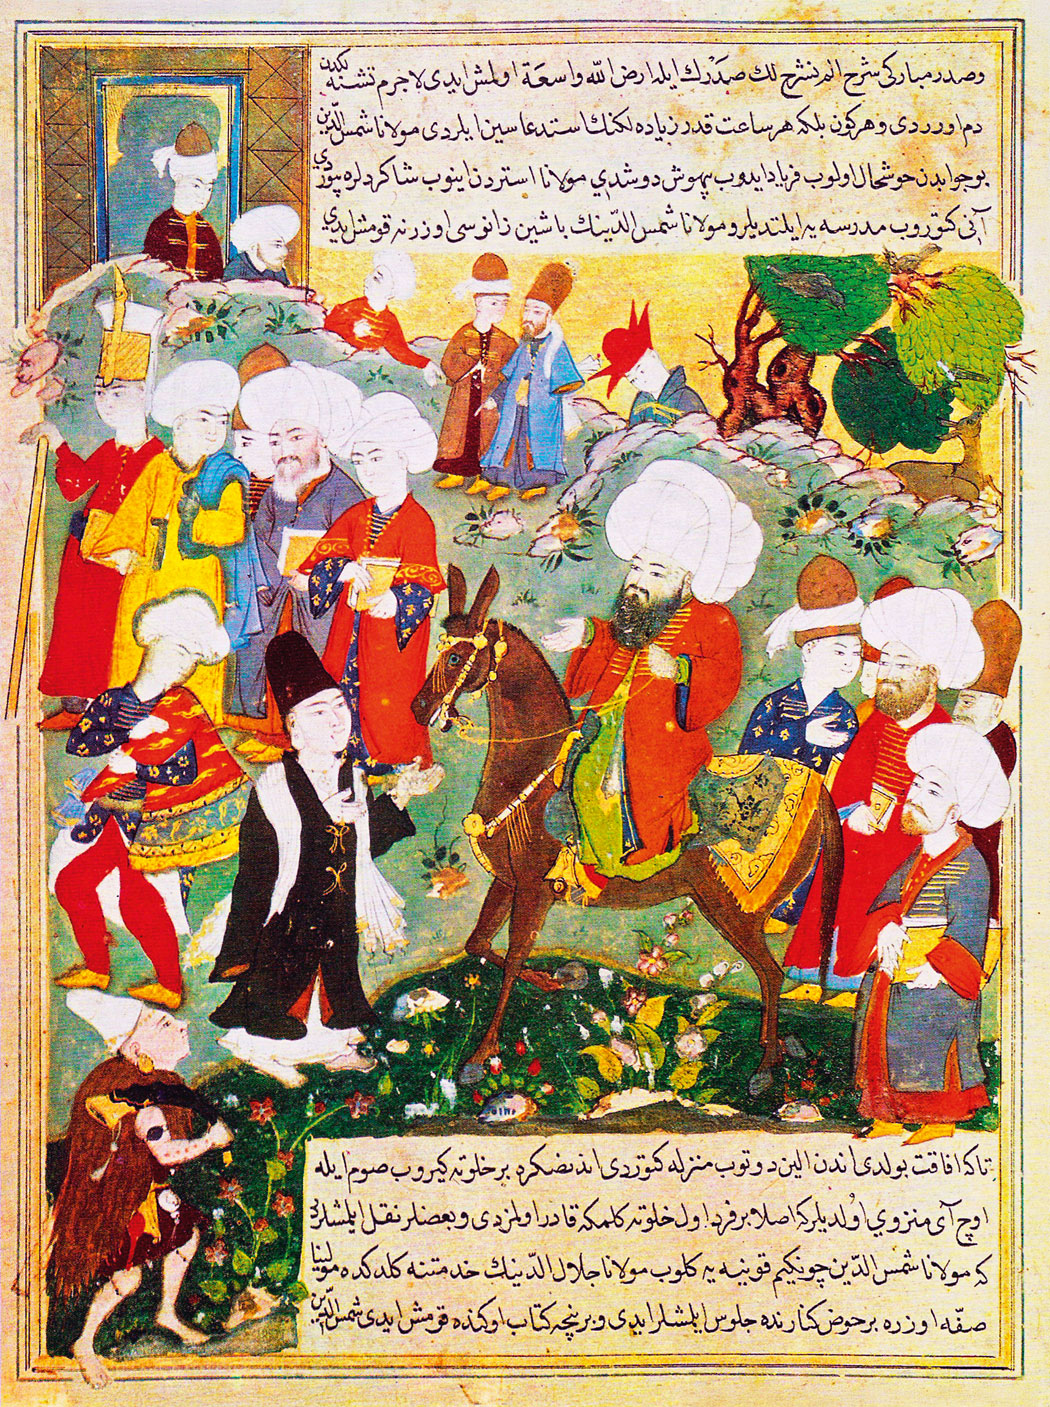 وصدر مباركی شرح الم نشرح لك صدرك ایله ارض الله واسعة اولمش ایدی لاجرم تشنه لكدن
دم اورردی و هركون بلكه هر ساعت قدر زیاده لكنك استدعاسین ایلردی مولانا شمس الدین
بو جوابدن خوشحال اولوب فریاد ایدوب بیهوش دوشدی مولانا استردن اینوب شاكردلره بیوردی
آنی كتوروب مدرسه یه ایلتدیلر و مولانا شمس الدینك باشین زانوسی اوزرنه قومشلیدی
تاكه افاقت بولدی اندن الین دوتوب منزله كتوردی اندنصكره بر خلوته كیروب صوم ایله
اوچ آی منزوی اولدیلر كه اصلا بر فرد اول خلوته كلمكه قادر اولمزدی و بعضلر نقل ایلمشلردی
كه مولانا شمس الدین چونكیم قونیه یه كلوب مولانا جلال الدینك خدمتنه كلدكده مولینا
صفّه اوزره بر حوض كنارنده جلوس ایلمشلر ایدی و بر نیچه كتاب اوكنده قومش ایدی شمس الدین